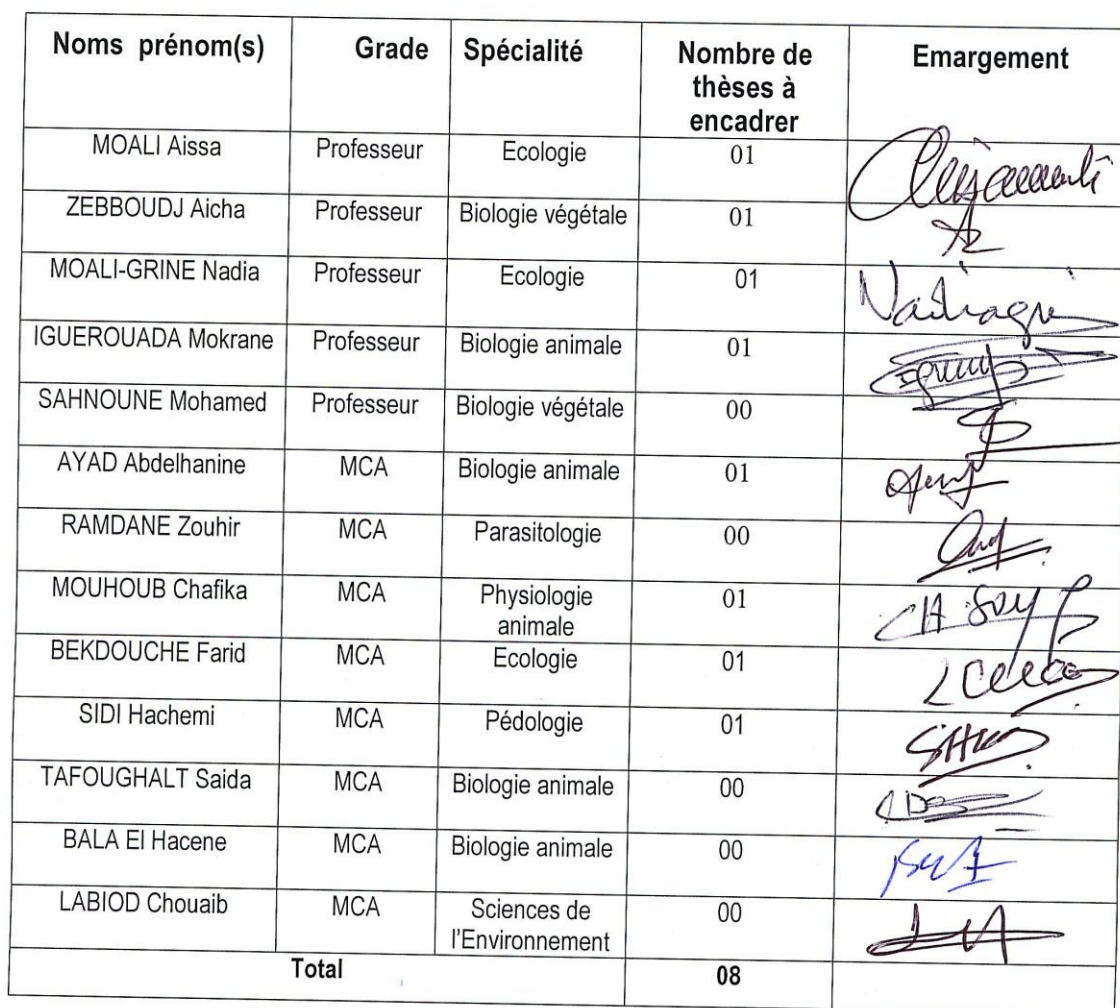 Noms prénom(s) Grade Spécialité Nombre de thèses à encadrer Emargement
MOALI Aissa Professeur Ecologie 01
ZEBBOUDJ Aicha Professeur Biologie végétale 01
MOALI-GRINE Nadia Professeur Ecologie 01
IGUEROUADA Mokrane Professeur Biologie animale 01
SAHNOUNE Mohamed Professeur Biologie végétale 00
AYAD Abdelhanine MCA Biologie animale 01
RAMDANE Zouhir MCA Parasitologie 00
MOUHOUB Chafika MCA Physiologie animale 01
BEKDOUCHE Farid MCA Ecologie 01
SIDI Hachemi MCA Pédologie 01
TAFOUGHALT Saida MCA Biologie animale 00
BALA El Hacene MCA Biologie animale 00
LABIOD Chouaib MCA Sciences de l'Environnement 00
Total 08